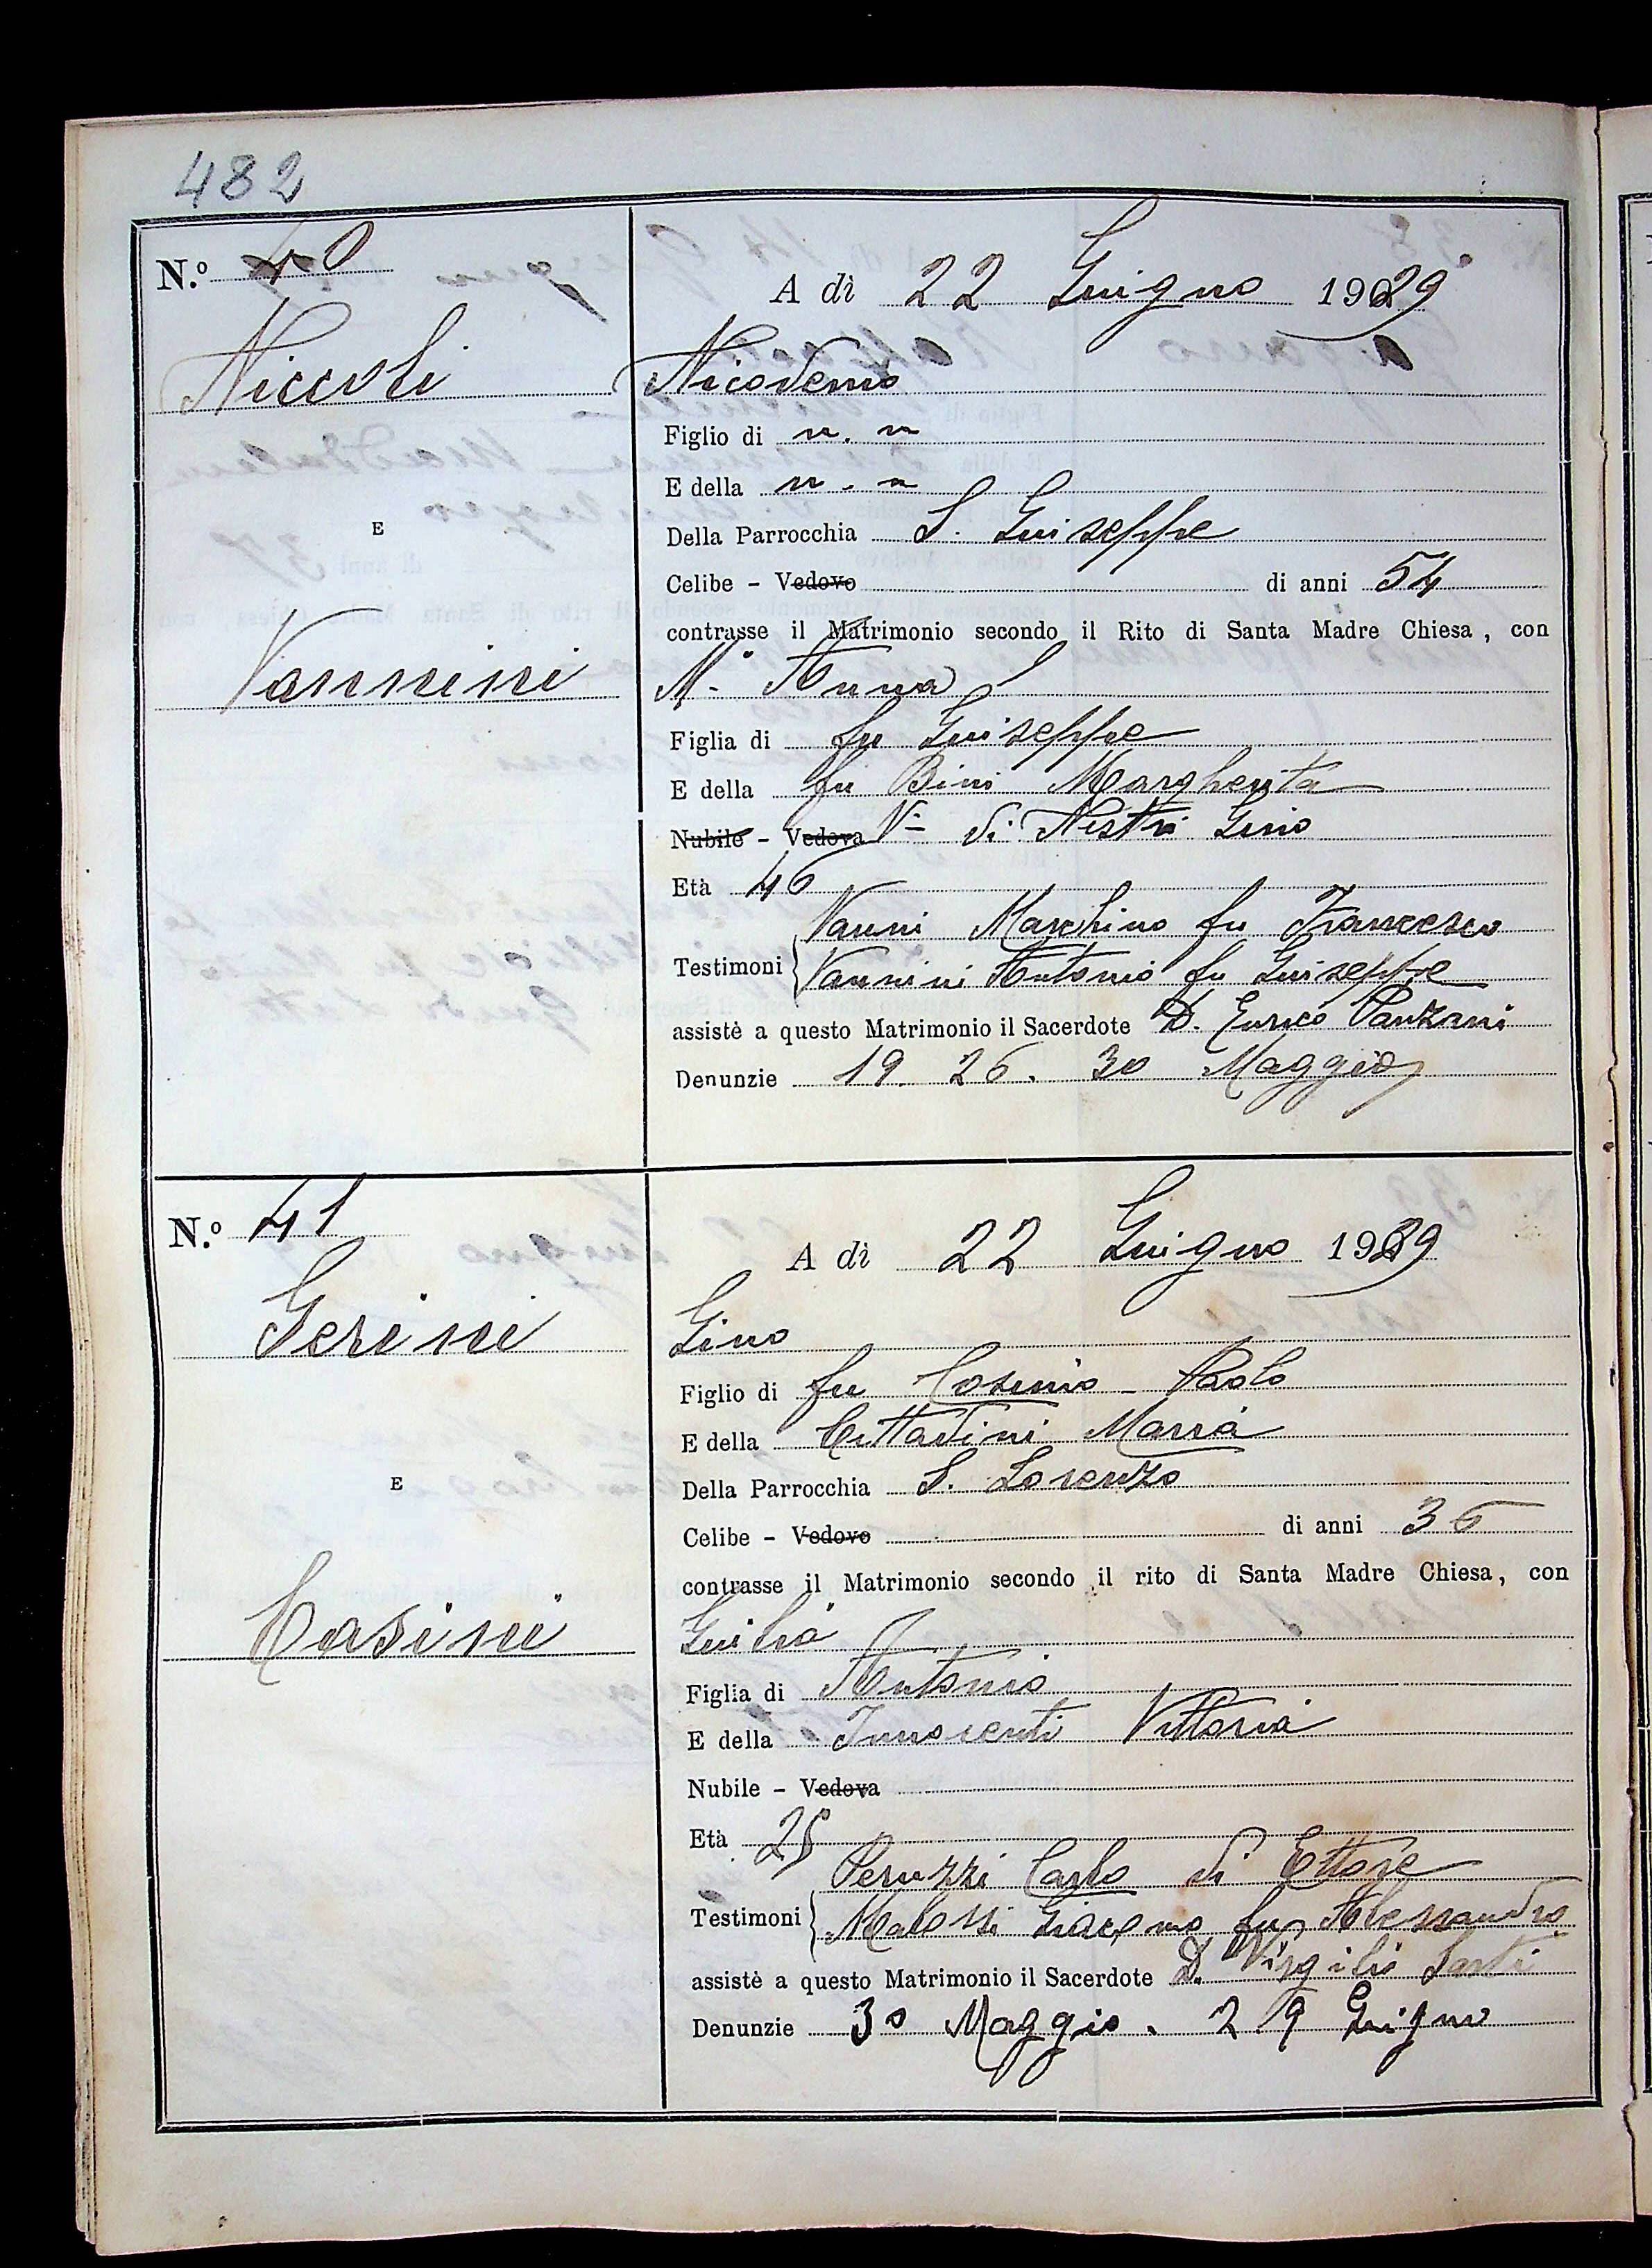 482
N.º 40
A dì 22 Giugno 1929
Niccoli Nicodemo
Figlio di n. n
E della n. n
E
Della Parrocchia S. Giuseppe
Celibe - Vedovo di anni 54
contrasse il Matrimonio secondo il Rito di Santa Madre Chiesa, con
Vannini Mª Anna
Figlia di fu Giuseppe
E della fu Bini Margherita
Nubile - Vedova Vª di Nestri Gino
Età 46
Vanni Marchino fu Francesco
Testimoni Vannini Antonio fu Giuseppe
assistè a questo Matrimonio il Sacerdote D. Enrico Panzani
Denunzie 19. 26. 30 Maggio
N.º 41
A dì 22 Giugno 1929
Gerini Gino
Figlio di fu Cosimo - Paolo
E della Cittadini Maria
Della Parrocchia S. Lorenzo
E
Celibe - Vedovo di anni 36
contrasse il Matrimonio secondo il rito di Santa Madre Chiesa, con
Casini Giulia
Figlia di Antonio
E della Innocenti Vittoria
Nubile - Vedova
Età 25
Peruzzi Carlo di Ettore
Testimoni Giacomo fu Alessandro
assistè a questo Matrimonio il Sacerdote D. Virgilio Sarti
Denunzie 30 Maggio. 2. 9 Giugno